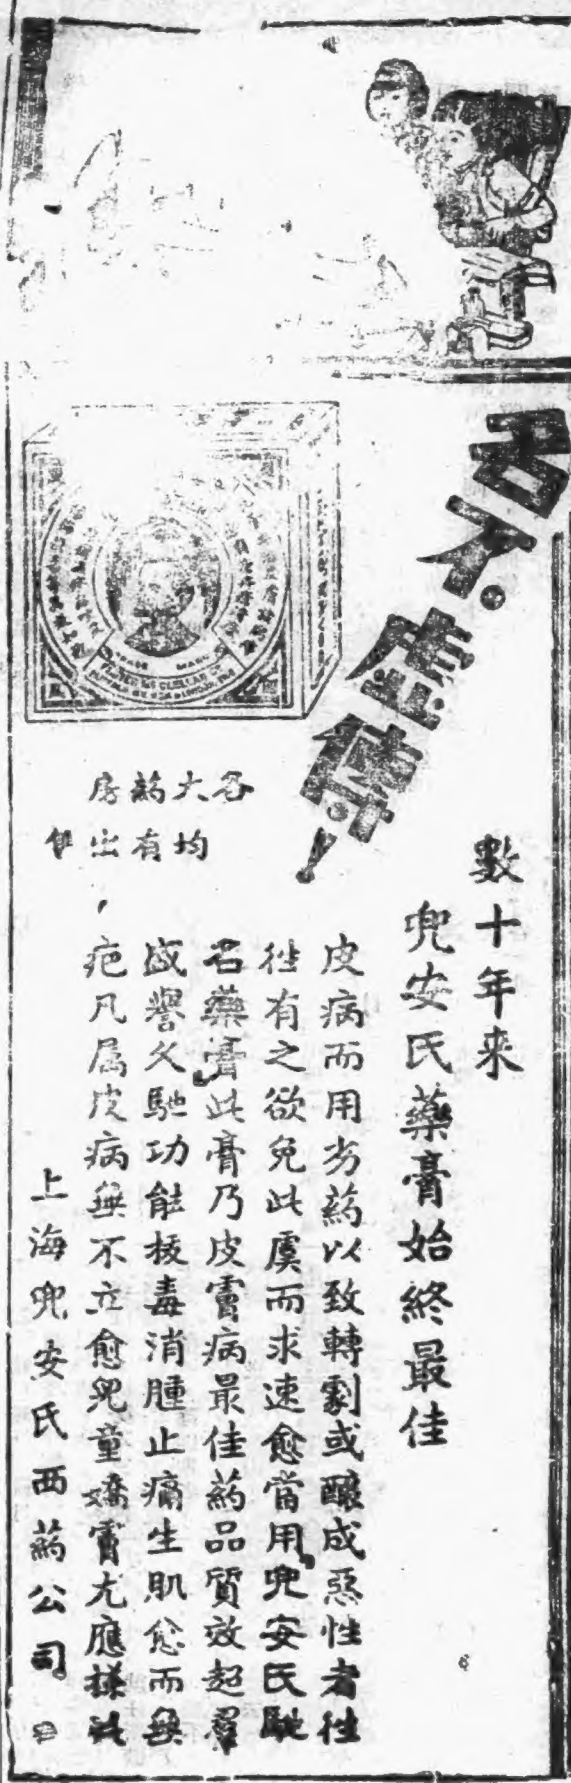 名不虛傳！
數十年來
兜安氏藥膏始終最佳
皮病而用劣药以致轉劇或釀成惡性者往
往有之欲免此虞而求速愈當用兜安氏馳
名藥膏此膏乃皮膚病最佳药品質效超羣
盛譽久馳功能拔毒消腫止痛生肌愈而無
疤凡属皮病無不立愈兒童嬌膚尤應擇
各大药房
均有出售
上海兜安氏西药公司
TRADE MARK